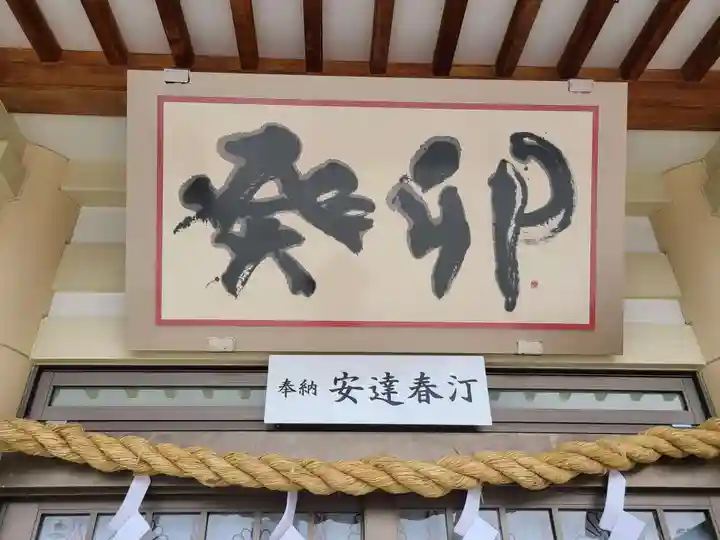 癸卯
奉納 安達春汀